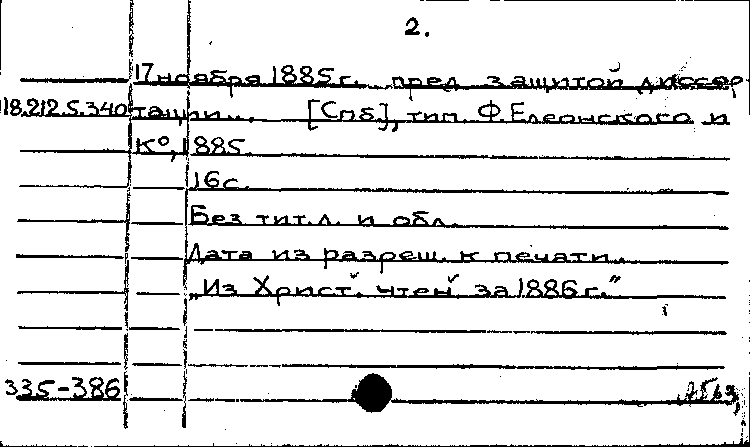 2.
17 ноября 1885 г. пред защитой диссер
118.212.5.340 тации... [Спб], тип. Ф. Елеонского и
К°, 1885.
16 с.
Без тит. л. и обл.
Дата из разреш. к печати.
„Из Христ. чтен. за 1886 г."
335-386